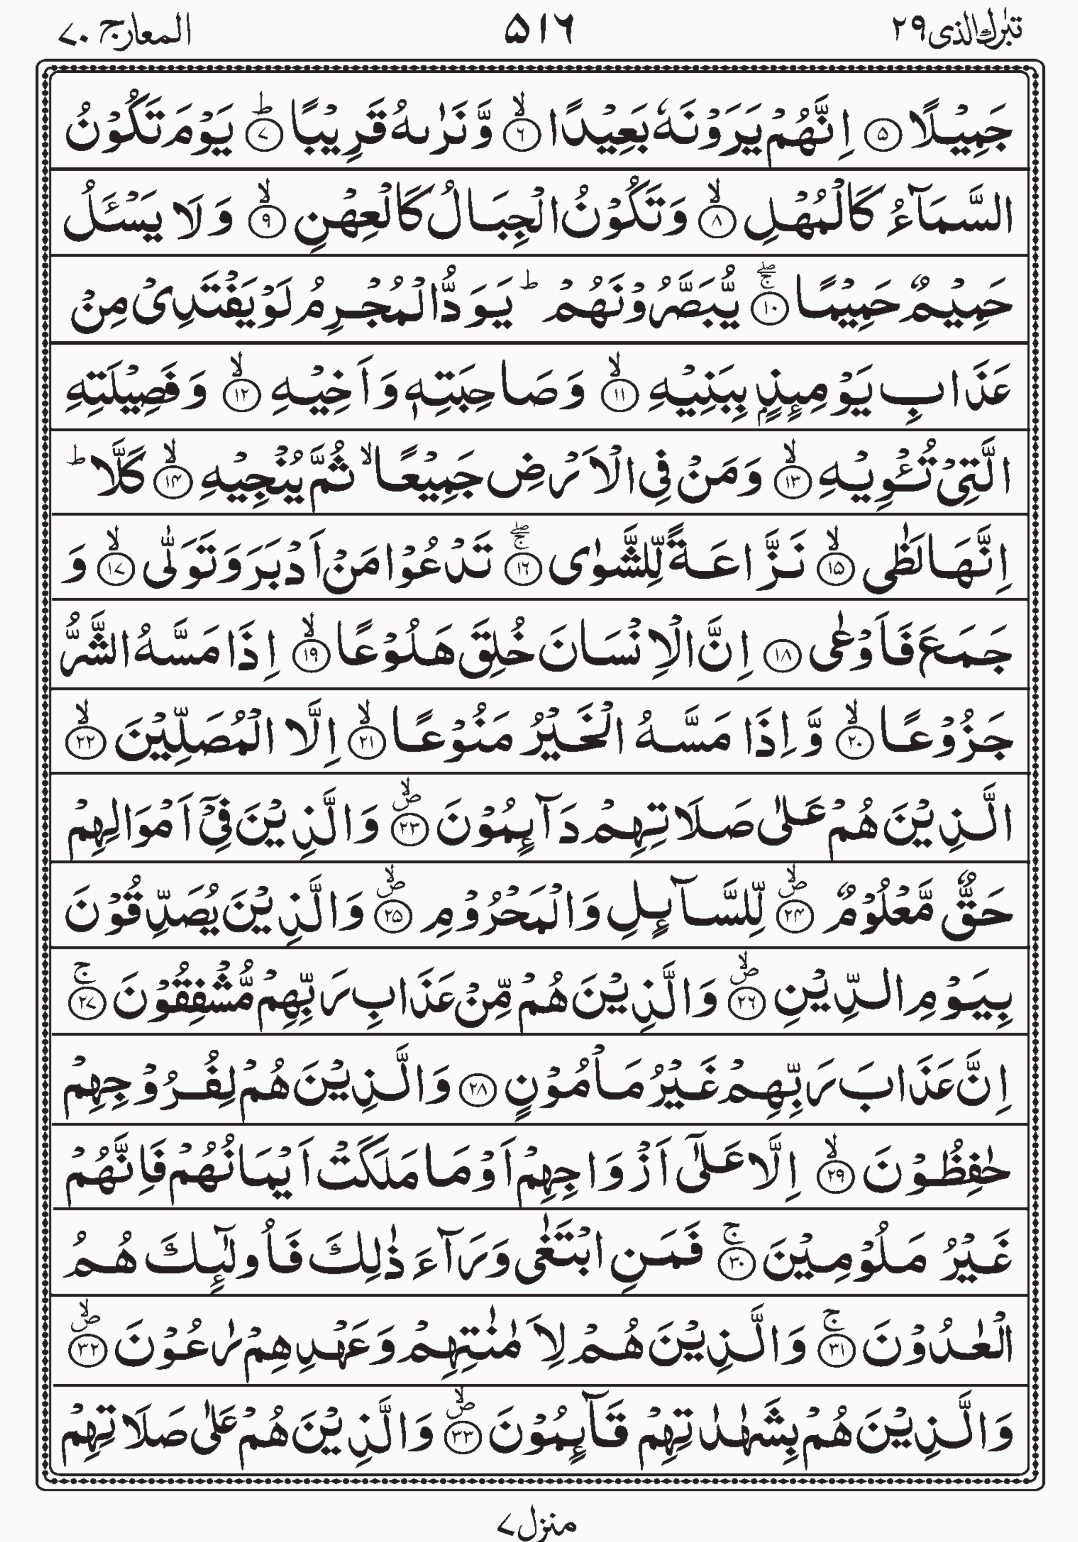 تبٰرك الذی ٢٩ ٥١٦ المعارج ٧٠
جَمِيْلًا ۝٥ اِنَّهُمْ يَرَوْنَهٗ بَعِيْدًا ۝٦ۙ وَّنَرٰىهُ قَرِيْبًا ۝٧ؕ يَوْمَ تَكُوْنُ
السَّمَآءُ كَالْمُهْلِ ۝٨ۙ وَتَكُوْنُ الْجِبَالُ كَالْعِهْنِ ۝٩ۙ وَلَا يَسْـَٔلُ
حَمِيْمٌ حَمِيْمًا ۝١٠ۚۖ يُّبَصَّرُوْنَهُمْ ؕ يَوَدُّ الْمُجْرِمُ لَوْ يَفْتَدِىْ مِنْ
عَذَابِ يَوْمِئِذٍۭ بِبَنِيْهِ ۝١١ۙ وَصَاحِبَتِهٖ وَاَخِيْهِ ۝١٢ۙ وَفَصِيْلَتِهِ
الَّتِىْ تُـْٔوِيْهِ ۝١٣ۙ وَمَنْ فِى الْاَرْضِ جَمِيْعًا ۙ ثُمَّ يُنْجِيْهِ ۝١٤ۙ كَلَّا ؕ
اِنَّهَا لَظٰى ۝١٥ۙ نَزَّاعَةً لِّلشَّوٰى ۝١٦ۚۖ تَدْعُوْا مَنْ اَدْبَرَ وَتَوَلّٰى ۝١٧ۙ وَ
جَمَعَ فَاَوْعٰى ۝١٨ اِنَّ الْاِنْسَانَ خُلِقَ هَلُوْعًا ۝١٩ۙ اِذَا مَسَّهُ الشَّرُّ
جَزُوْعًا ۝٢٠ۙ وَّاِذَا مَسَّهُ الْخَيْرُ مَنُوْعًا ۝٢١ۙ اِلَّا الْمُصَلِّيْنَ ۝٢٢ۙ
الَّذِيْنَ هُمْ عَلٰى صَلَاتِهِمْ دَآئِمُوْنَ ۝٢٣ۙۖ وَالَّذِيْنَ فِىْٓ اَمْوَالِهِمْ
حَقٌّ مَّعْلُوْمٌ ۝٢٤ۙۖ لِّلسَّآئِلِ وَالْمَحْرُوْمِ ۝٢٥ۙۖ وَالَّذِيْنَ يُصَدِّقُوْنَ
بِيَوْمِ الدِّيْنِ ۝٢٦ۙۖ وَالَّذِيْنَ هُمْ مِّنْ عَذَابِ رَبِّهِمْ مُّشْفِقُوْنَ ۝٢٧ۚ
اِنَّ عَذَابَ رَبِّهِمْ غَيْرُ مَاْمُوْنٍ ۝٢٨ وَالَّذِيْنَ هُمْ لِفُرُوْجِهِمْ
حٰفِظُوْنَ ۝٢٩ۙ اِلَّا عَلٰٓى اَزْوَاجِهِمْ اَوْ مَا مَلَكَتْ اَيْمَانُهُمْ فَاِنَّهُمْ
غَيْرُ مَلُوْمِيْنَ ۝٣٠ۚ فَمَنِ ابْتَغٰى وَرَآءَ ذٰلِكَ فَاُولٰٓئِكَ هُمُ
الْعٰدُوْنَ ۝٣١ۚ وَالَّذِيْنَ هُمْ لِاَمٰنٰتِهِمْ وَعَهْدِهِمْ رٰعُوْنَ ۝٣٢ۙۖ
وَالَّذِيْنَ هُمْ بِشَهٰدٰتِهِمْ قَآئِمُوْنَ ۝٣٣ۙۖ وَالَّذِيْنَ هُمْ عَلٰى صَلَاتِهِمْ
منزل ٧